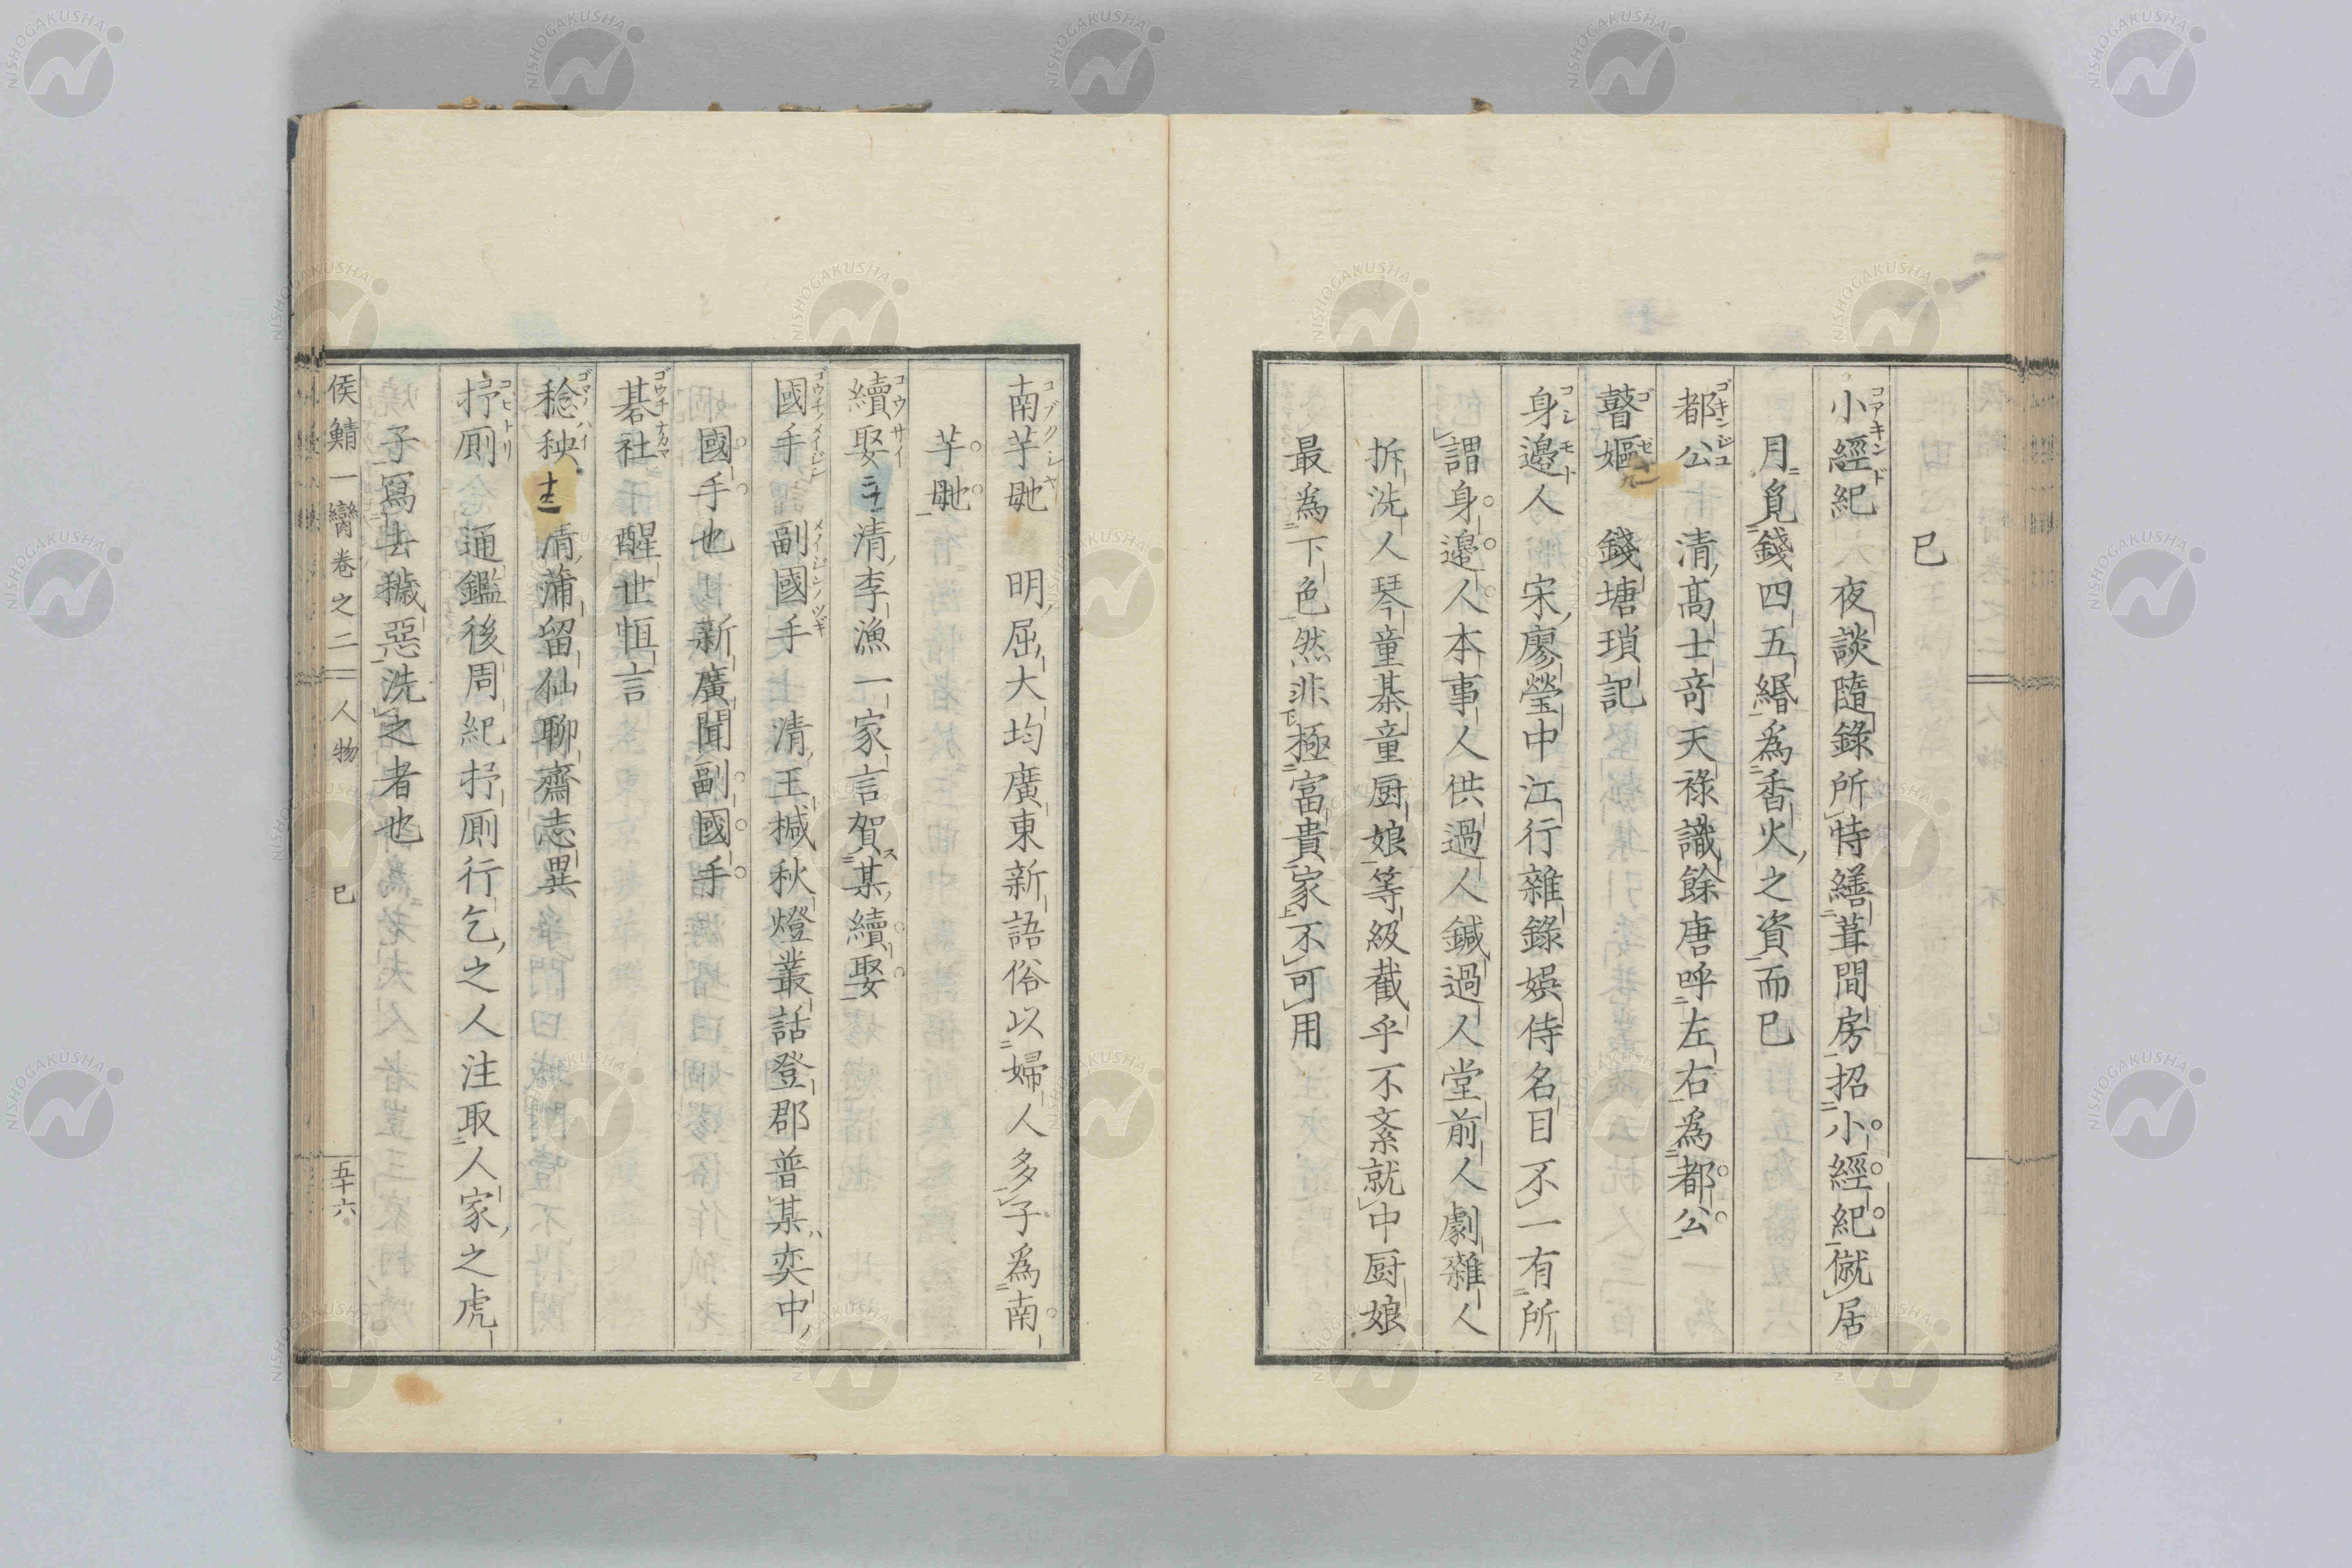 已
小經紀 夜談隨錄所恃繕葺間房招小經紀僦居
月覓錢四五緡為香火之資而已
都公 清高士奇天祿識餘唐呼左右為都公
瞽嫗 錢塘瑣記
身邊人 宋廖瑩中江行雜錄娛侍名目不一有所
謂身邊人本事人供過人鍼過人堂前人劇雜人
拆洗人琴童棊童厨娘等級截乎不紊就中厨娘
最為下色然非極富貴家不可用
南芋毑 明屈大均廣東新語俗以婦人多子為南
芋毑
續娶 清李漁一家言賀某續娶
國手 副國手 清王椷秋燈叢話登郡普某奕中
國手也 新廣聞副國手
碁社 醒世恒言
稔秧 清蒲留仙聊齋志異
抒厠 通鑑後周紀抒厠行乞之人注取人家之虎
子寫去穢惡洗之者也
侯鯖一臠卷之二 人物 巳 五十六
NISHOGAKUSHA